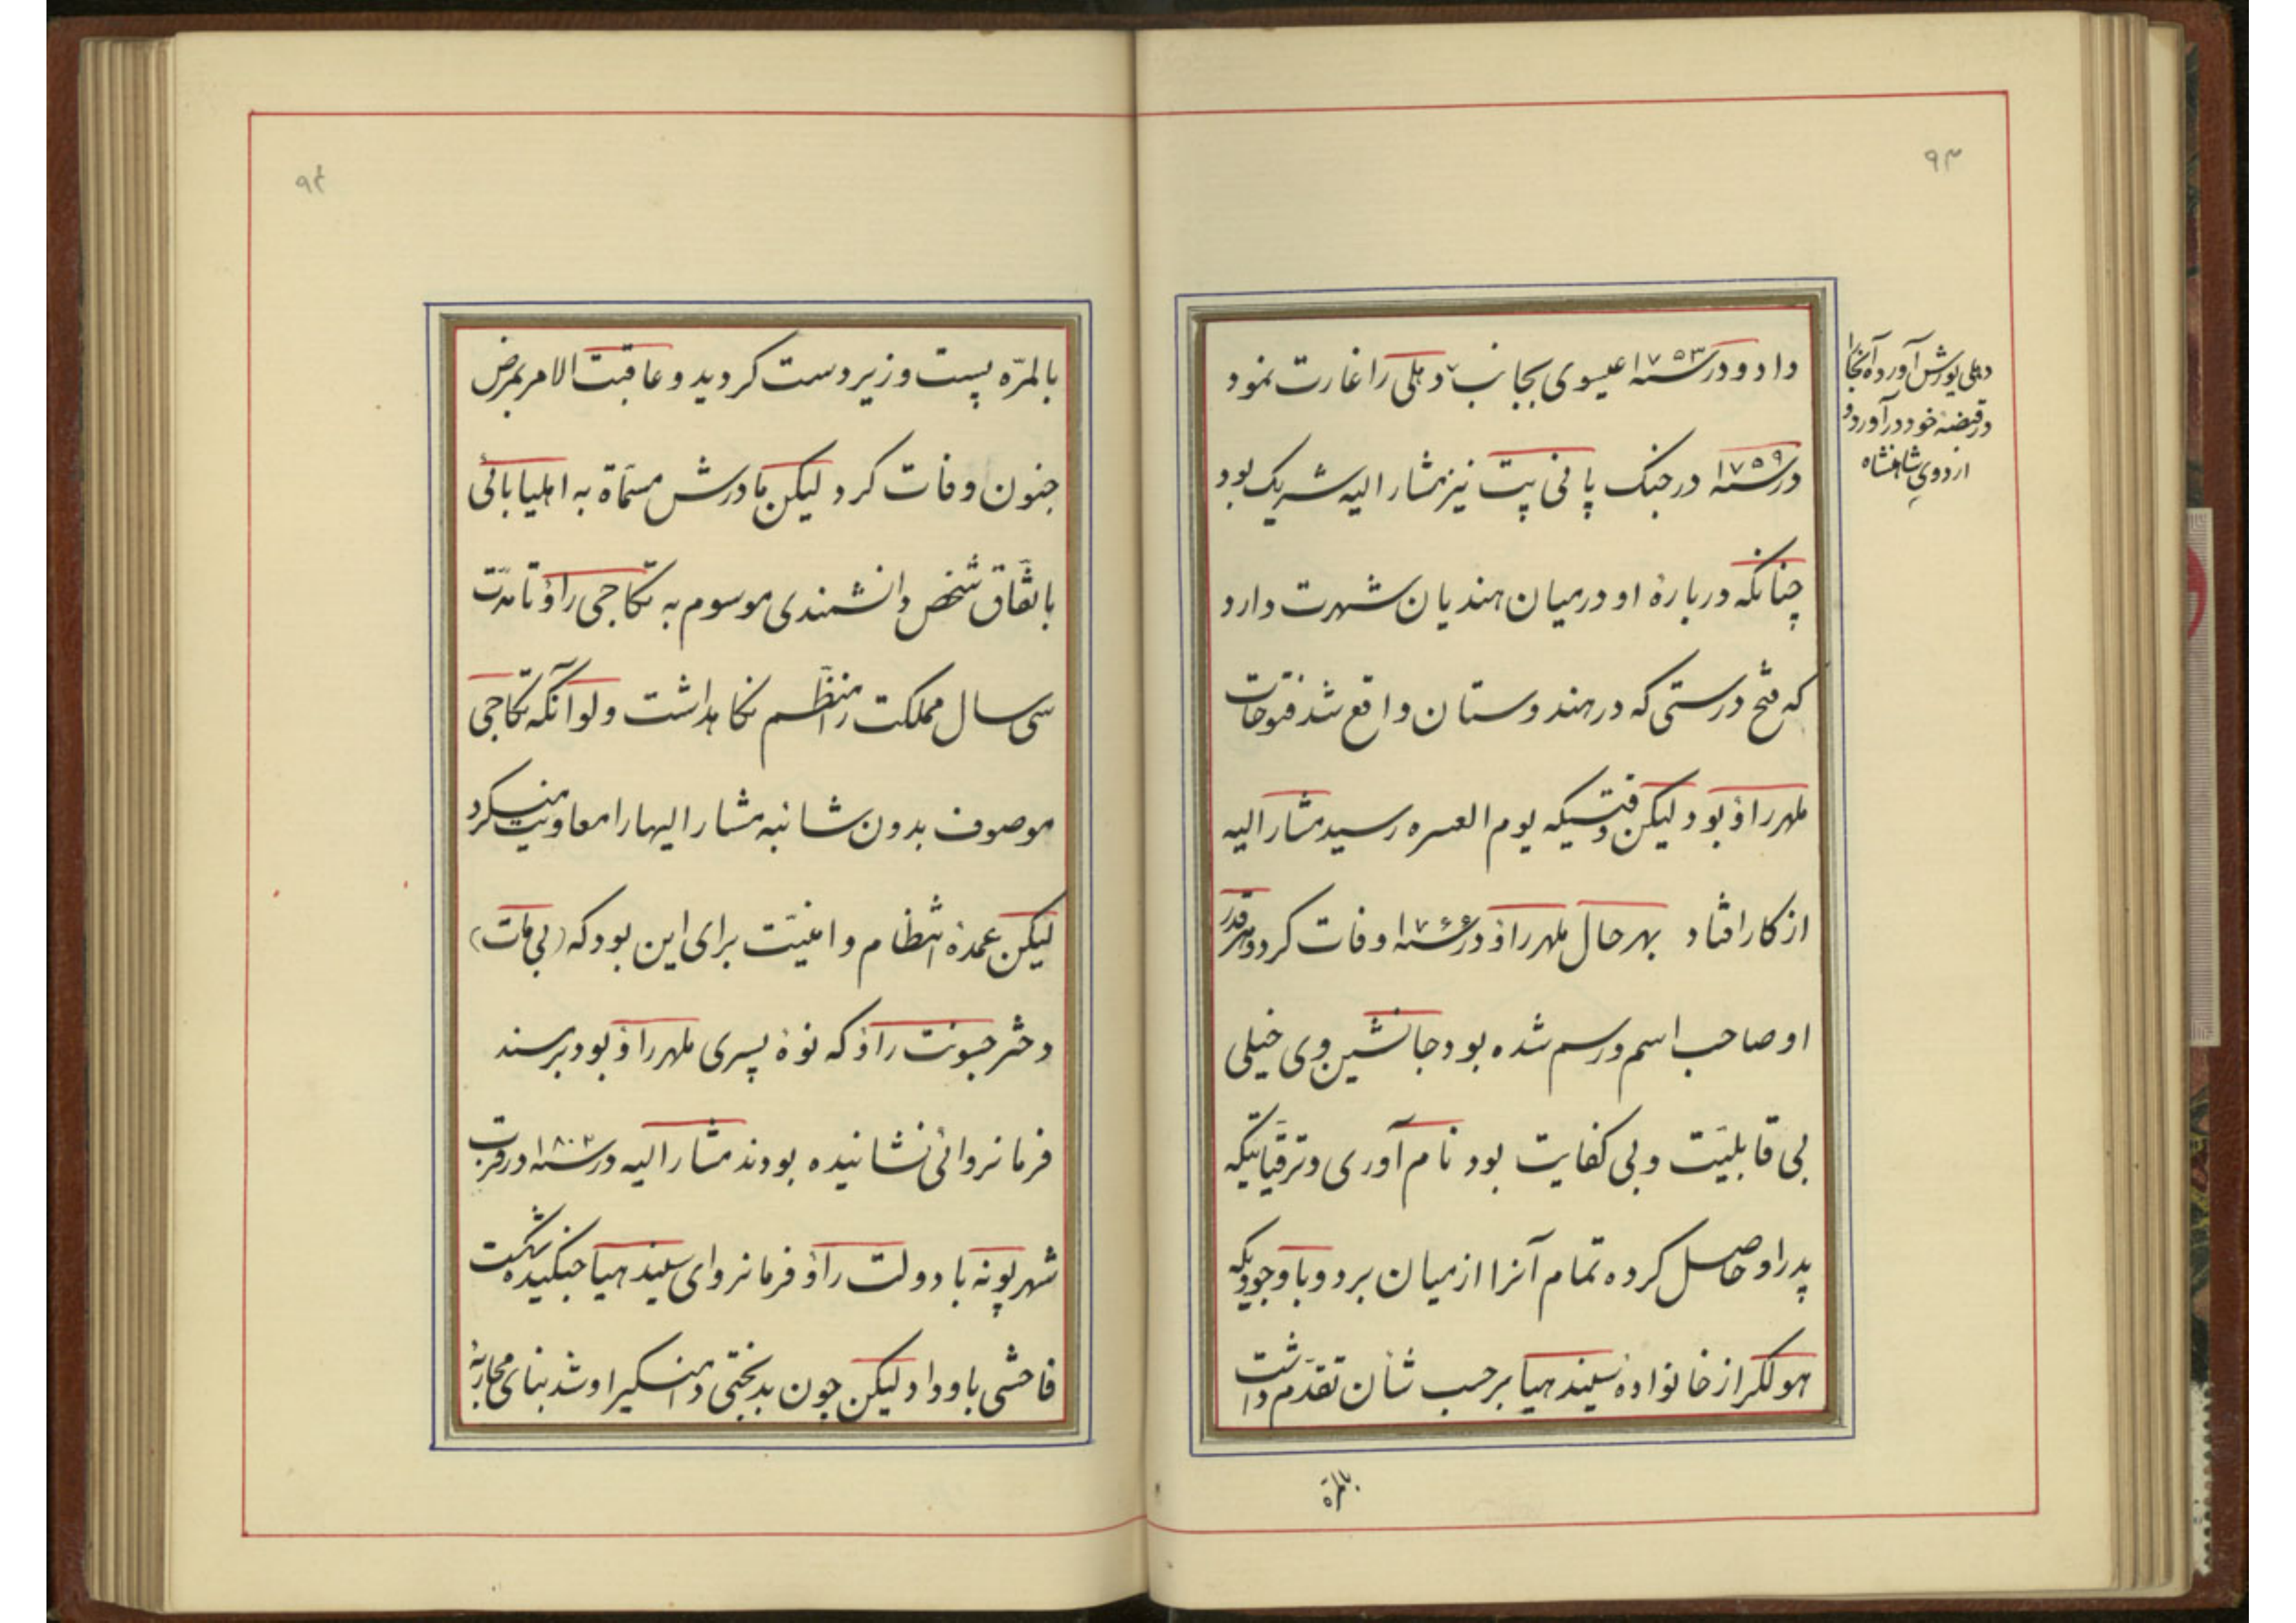 ۹۳
داد و در سنه ۱۷۵۳ عیسوی بجانب دهلی را غارت نمود
دهلی یورش آورد آنجا را
در قبضهٔ خود درآورد و
اردوی شاهنشاه
در سنه ۱۷۵۹ در جنک پانی پت نیز مشار الیه شریک بود
چنانکه دربارهٔ او در میان هندیان شهرت دارد
که فتح درستی که در هندوستان واقع شد فتوحات
ملهر راؤ بود لیکن وقتیکه یوم العسره رسید مشار الیه
از کار افتاد بهر حال ملهر راؤ در سنه ۱۷۶۶ وفات کرد و هر قدر
او صاحب اسم و رسم شده بود جانشین وی خیلی
بی قابلیّت و بی کفایت بود نام آوری و ترقّیاتیکه
پدر او حاصل کرده تمام آنرا از میان برد و با وجودیکه
هولکر از خانوادهٔ سیندهیا برحسب شأن تقدّم داشت
بالمرّه
۹۴
بالمرّه پست و زیردست کردید و عاقبت الامر بمرض
جنون وفات کرد لیکن مادرش مسمّاة به اهلیا بائی
باتّفاق شخص دانشمندی موسوم به تکاجی راؤ تا مدّت
سی سال مملکت را منظّم نکاهداشت ولو آنکه تکاجی
موصوف بدون شائبه مشار الیها را معاونت میکرد
لیکن عمدهٔ انتظام و امنیّت برای این بود که (بی مات)
دختر جسونت راؤ که نوهٔ پسری ملهر راؤ بود بر مسند
فرمانروائی نشانیده بودند مشار الیه در سنه ۱۸۰۲ در قرب
شهر پونه با دولت راؤ فرمانروای سیندهیا جنکیده شکست
فاحشی باو داد لیکن چون بدبختی دامنکیر او شد بنای محاربهٔ